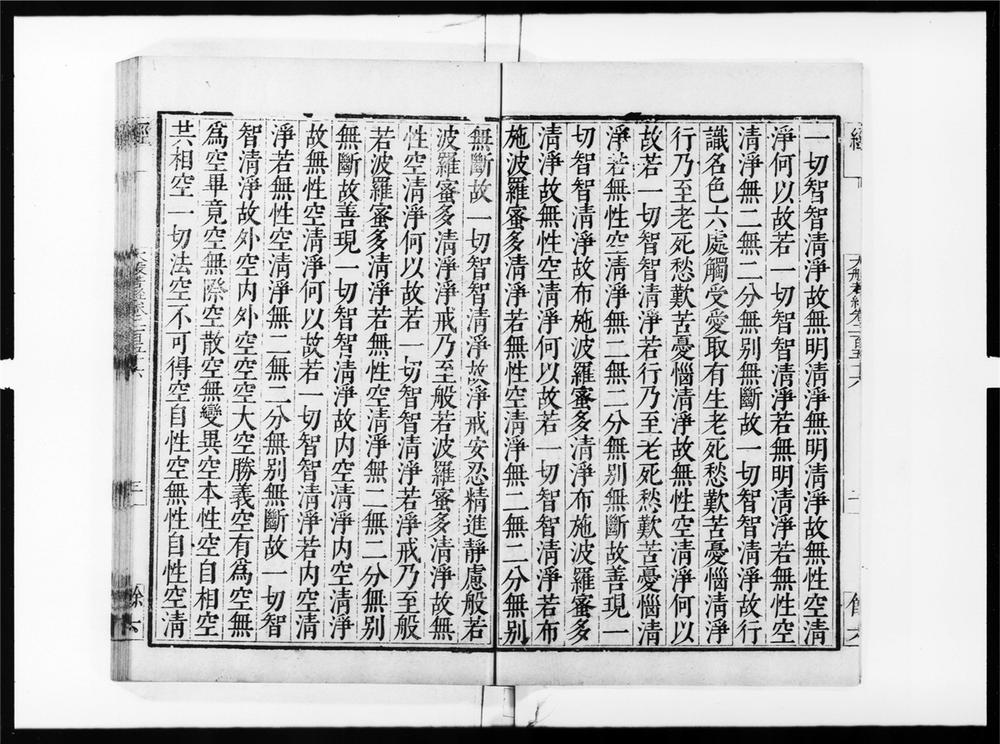 經 大般若經卷二百五十六
一切智智清淨故無明清淨無明清淨故無性空清
淨何以故若一切智智清淨若無明清淨若無性空
清淨無二無二分無別無斷故一切智智清淨故行
識名色六處觸受愛取有生老死愁歎苦憂惱清淨
行乃至老死愁歎苦憂惱清淨故無性空清淨何以
故若一切智智清淨若行乃至老死愁歎苦憂惱清
淨若無性空清淨無二無二分無別無斷故善現一
切智智清淨故布施波羅蜜多清淨布施波羅蜜多
清淨故無性空清淨何以故若一切智智清淨若布
施波羅蜜多清淨若無性空清淨無二無二分無別
無斷故一切智智清淨故淨戒安忍精進靜慮般若
波羅蜜多清淨淨戒乃至般若波羅蜜多清淨故無
性空清淨何以故若一切智智清淨若淨戒乃至般
若波羅蜜多清淨若無性空清淨無二無二分無別
無斷故善現一切智智清淨故內空清淨內空清淨
故無性空清淨何以故若一切智智清淨若內空清
淨若無性空清淨無二無二分無別無斷故一切智
智清淨故外空內外空空空大空勝義空有爲空無
爲空畢竟空無際空散空無變異空本性空自相空
共相空一切法空不可得空自性空無性自性空清